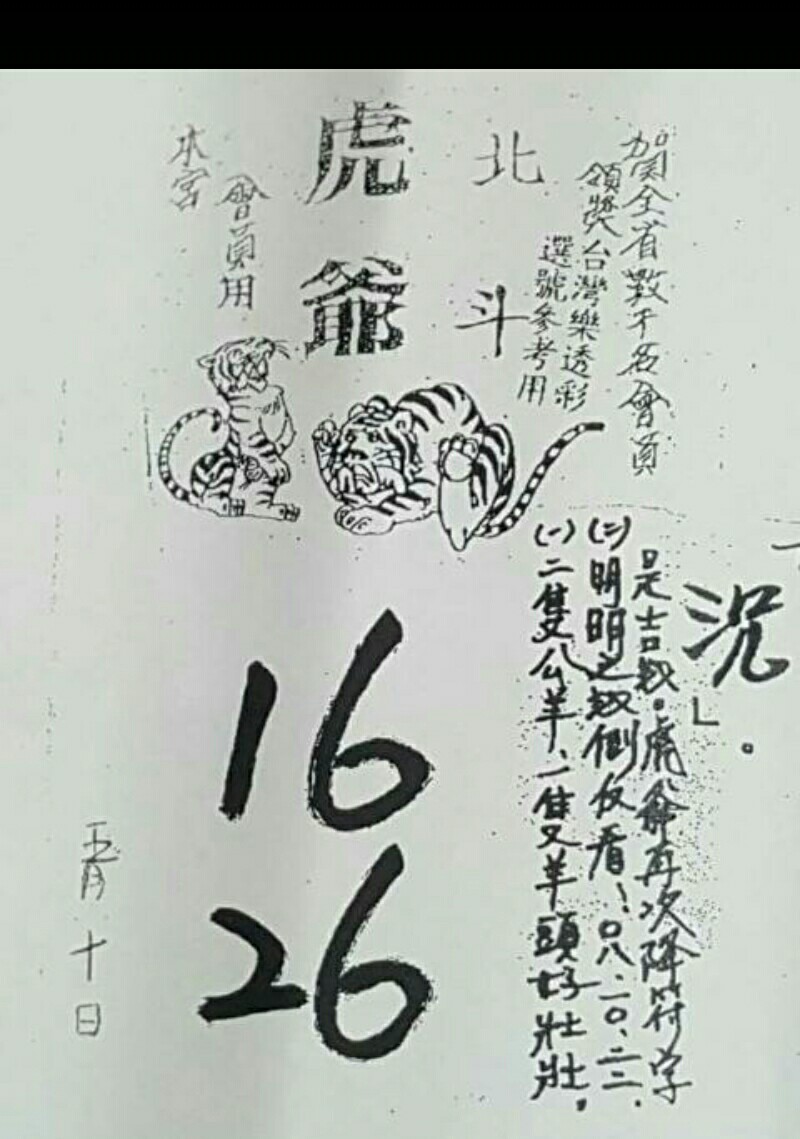 賀全省數千名會員
領獎台灣樂透彩
選號參考用
北斗
虎爺
本宮
會員用
況」。
是吉数。虎爺再次降符字
(二)明明之数看、0八.一0.二二.
(一)二隻公羊、一隻羊頭好壯壯。
16
26
五月十日